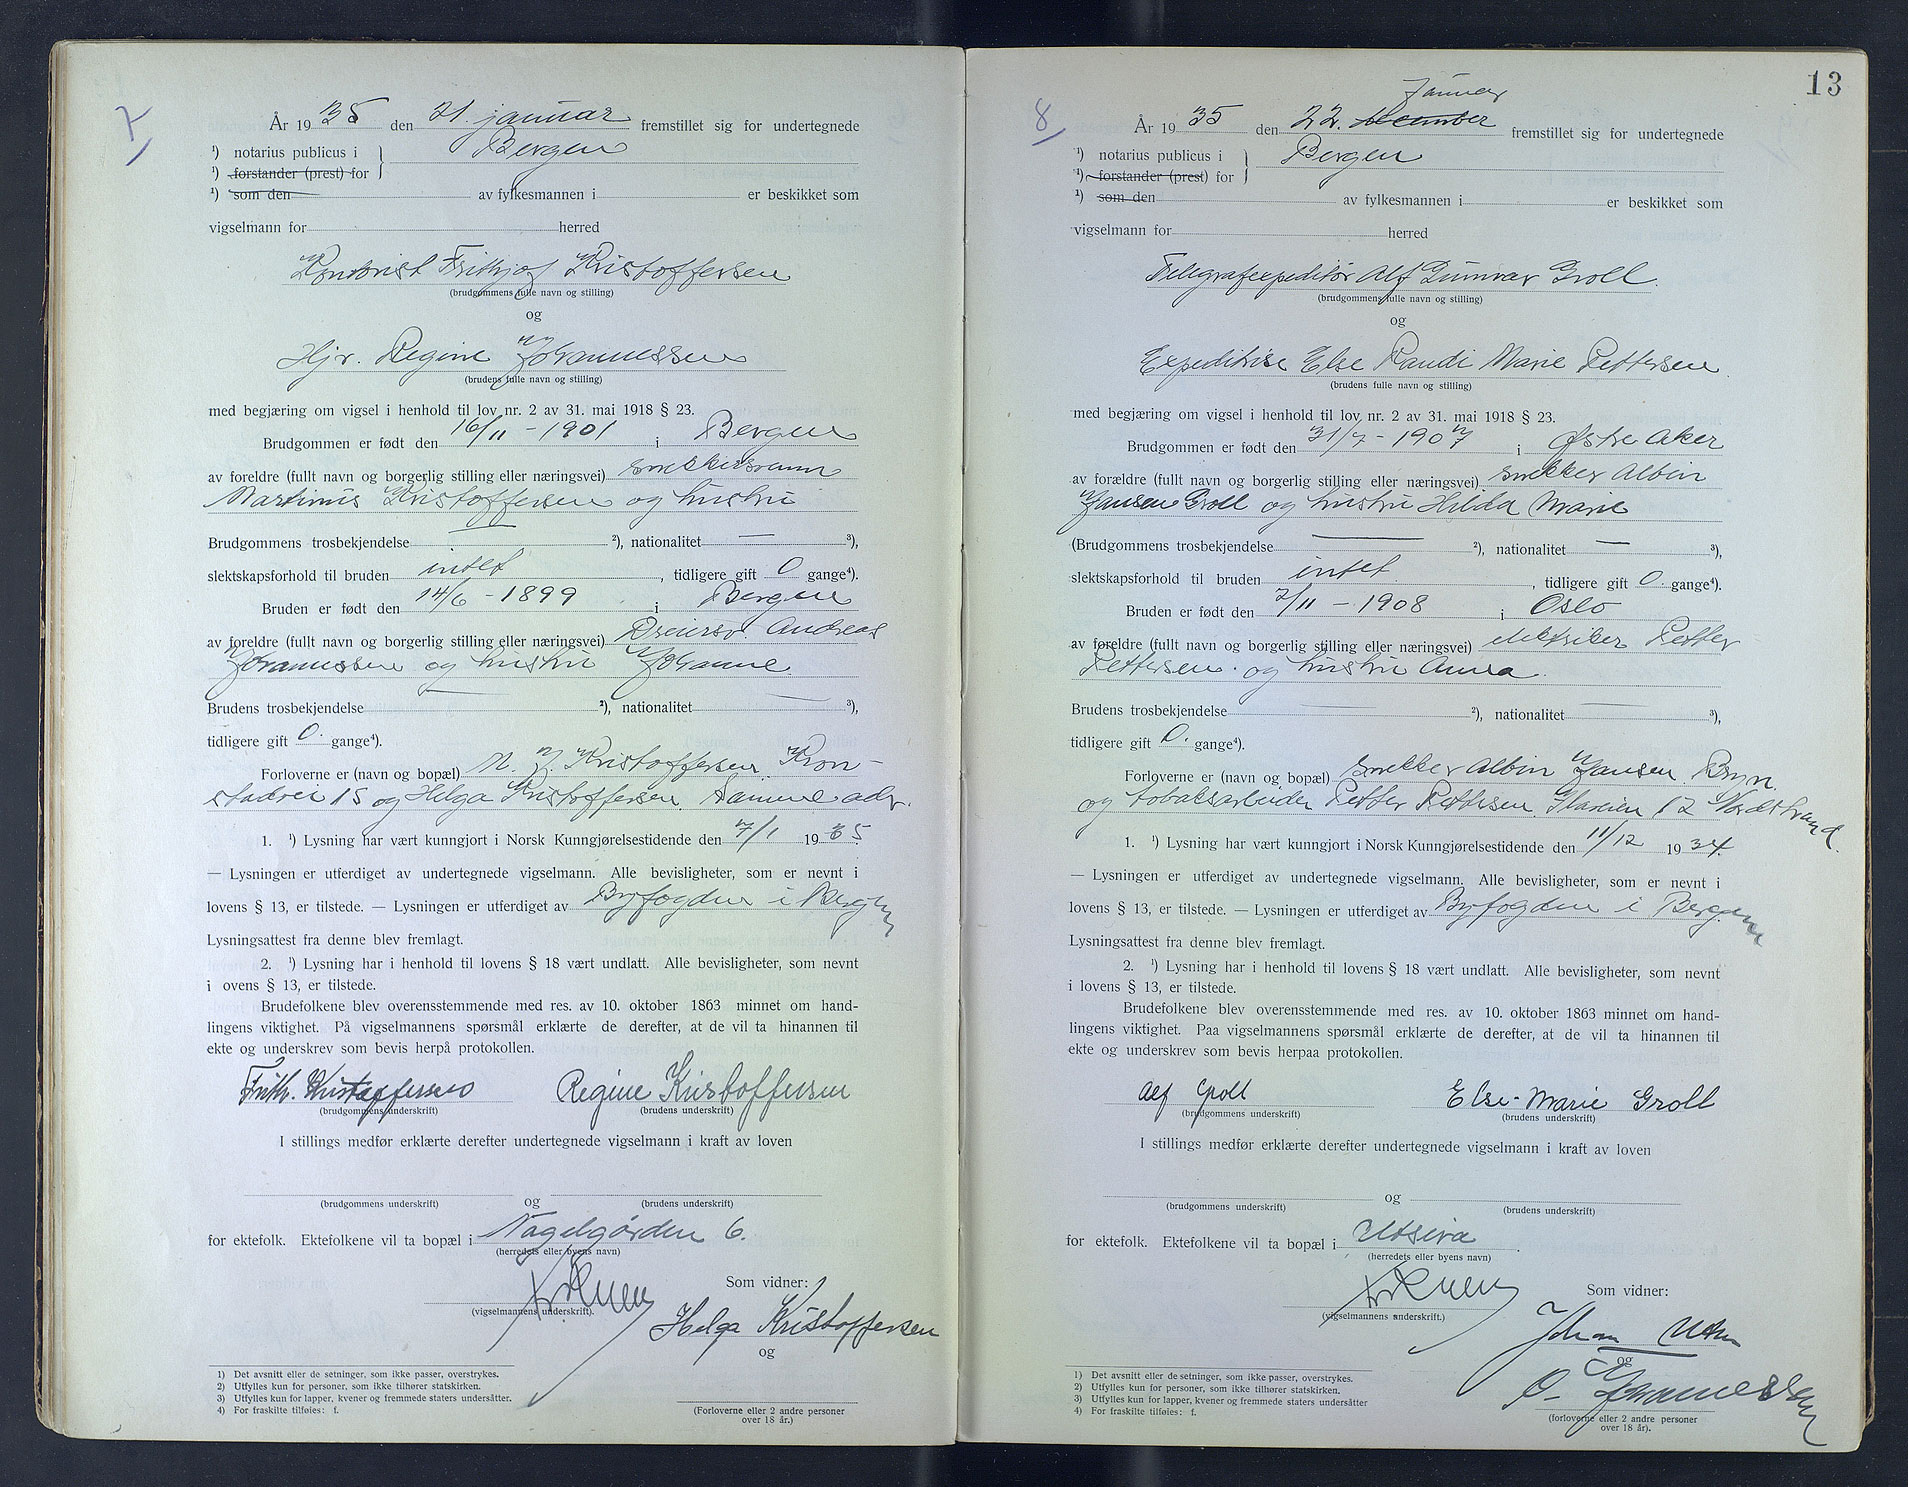 7
År 1935 den 21. januar fremstillet sig for undertegnede
¹) notarius publicus i } Bergen
¹) forstander (prest) for
¹) som den av fylkesmannen i er beskikket som
vigselmann for herred
Kontorist Frithjof Kristoffersen
(brudgommens fulle navn og stilling)
og
Hjv. Regine Johannessen
(brudens fulle navn og stilling)
med begjæring om vigsel i henhold til lov nr. 2 av 31. mai 1918 § 23.
Brudgommen er født den 16/11 - 1901 i Bergen
av foreldre (fullt navn og borgerlig stilling eller næringsvei) snekkersvenn
Martinus Kristoffersen og hustru
—
Brudgommens trosbekjendelse ²), nationalitet — ³),
slektskapsforhold til bruden intet, tidligere gift 0 gange⁴).
Bruden er født den 14/6 - 1899 i Bergen
av foreldre (fullt navn og borgerlig stilling eller næringsvei) Dreiersv. Andreas
Johannessen og hustru Johanne.
Brudens trosbekjendelse — ²), nationalitet — ³),
tidligere gift 0. gange⁴).
Forloverne er (navn og bopæl) M. J. Kristoffersen, Kron-
stadvei 15 og Helga Kristoffersen. Samme adr.
1. ¹) Lysning har vært kunngjort i Norsk Kunngjørelsestidende den 7/1 1935.
— Lysningen er utferdiget av undertegnede vigselmann. Alle bevisligheter, som er nevnt i
lovens § 13, er tilstede. — Lysningen er utferdiget av Byfogden i Bergen
Lysningsattest fra denne blev fremlagt.
2. ¹) Lysning har i henhold til lovens § 18 vært undlatt. Alle bevisligheter, som nevnt
i ovens § 13, er tilstede.
Brudefolkene blev overensstemmende med res. av 10. oktober 1863 minnet om hand-
lingens viktighet. På vigselmannens spørsmål erklærte de derefter, at de vil ta hinannen til
ekte og underskrev som bevis herpå protokollen.
Frith. Kristoffersen Regine Kristoffersen
(brudgommens underskrift) (brudens underskrift)
I stillings medfør erklærte derefter undertegnede vigselmann i kraft av loven
og
(brudgommens underskrift) (brudens underskrift)
for ektefolk. Ektefolkene vil ta bopæl i Nagelgården 6.
(herredets eller byens navn)
Som vidner:
(vigselmannens underskrift).
Helga Kristoffersen
og
1) Det avsnitt eller de setninger, som ikke passer, overstrykes.
2) Utfylles kun for personer, som ikke tilhører statskirken.
3) Utfylles kun for lapper, kvener og fremmede staters undersåtter.
4) For fraskilte tilføies: f.
(Forloverne eller 2 andre personer
over 18 år.)
13
8
Januar
År 1935 den 22. december fremstillet sig for undertegnede
¹) notarius publicus i } Bergen
¹) forstander (prest) for
¹) som den av fylkesmannen i er beskikket som
vigselmann for herred
Telegrafexpeditør Alf Gunnar Groll.
(brudgommens fulle navn og stilling)
og
Expeditrise Else Randi Marie Pettersen
(brudens fulle navn og stilling)
med begjæring om vigsel i henhold til lov nr. 2 av 31. mai 1918 § 23.
Brudgommen er født den 31/7 - 1907 i Østre Aker
av forældre (fullt navn og borgerlig stilling eller næringsvei) snekker Albin
Jansen Groll og hustru Hilda Marie
(Brudgommens trosbekjendelse — ²), nationalitet — ³),
slektskapsforhold til bruden intet, tidligere gift 0. gange⁴).
Bruden er født den 7/11 - 1908 i Oslo
av føreldre (fullt navn og borgerlig stilling eller næringsvei) elektriker Petter
Pettersen. og hustru Anna.
Brudens trosbekjendelse — ²), nationalitet — ³),
tidligere gift 0. gange⁴).
Forloverne er (navn og bopæl) snekker Albin Jansen, Bryn
og tobaksarbeider Petter Pettersen, 12 Nordstrand.
1. ¹) Lysning har vært kunngjort i Norsk Kunngjørelsestidende den 11/12 1934.
— Lysningen er utferdiget av undertegnede vigselmann. Alle bevisligheter, som er nevnt i
lovens § 13, er tilstede. — Lysningen er utferdiget av Byfogden i Bergen
Lysningsattest fra denne blev fremlagt.
2. ¹) Lysning har i henhold til lovens § 18 vært undlatt. Alle bevisligheter, som nevnt
i lovens § 13, er tilstede.
Brudefolkene blev overensstemmende med res. av 10. oktober 1863 minnet om hand-
lingens viktighet. Paa vigselmannens spørsmål erklærte de derefter, at de vil ta hinannen til
ekte og underskrev som bevis herpaa protokollen.
Alf Groll Else-Marie Groll
(brudgommens underskrift) (brudens underskrift)
I stillings medfør erklærte derefter undertegnede vigselmann i kraft av loven
og
(brudgommens underskrift) (brudens underskrift)
for ektefolk. Ektefolkene vil ta bopæl i Utsira.
(herredets eller byens navn)
Som vidner:
(vigselmannens underskrift.)
Johan
og
O. Johannessen
1) Det avsnitt eller de setninger, som ikke passer, overstrykes.
2) Utfylles kun for personer, som ikke tilhører statskirken.
3) Utfylles kun for lapper, kvener og fremmede staters undersåtter
4) For fraskilte tilføies: f.
(forloverne eller 2 andre personer
over 18 år).